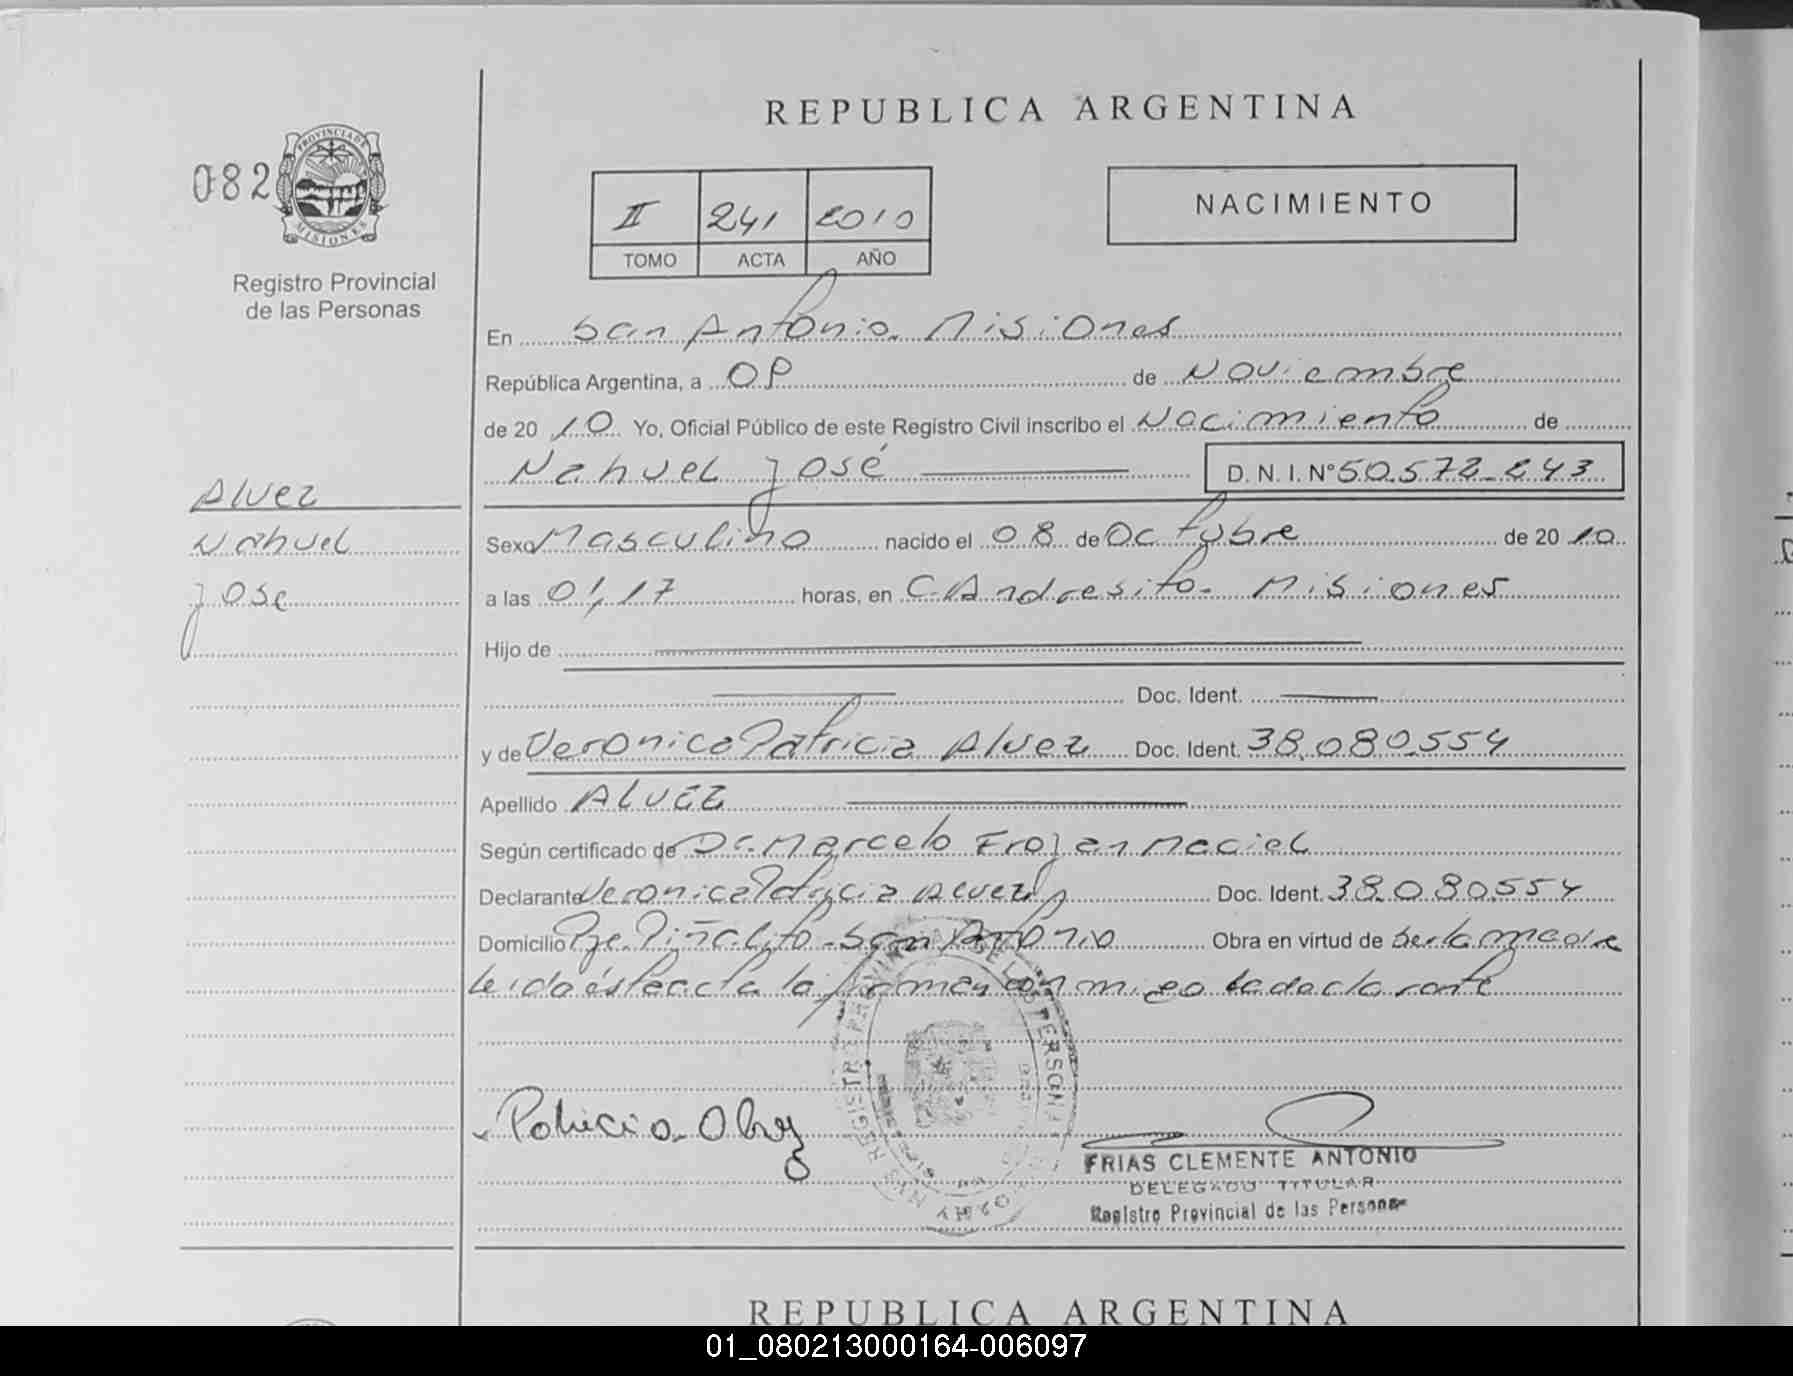 REPUBLICA ARGENTINA
082
PROVINCIA DE
MISIONES
Registro Provincial
de las Personas
II 241 2010
TOMO ACTA AÑO
NACIMIENTO
En San Antonio. Misiones
República Argentina, a 08 de Noviembre
de 20 10 Yo, Oficial Público de este Registro Civil inscribo el Nacimiento de
Nahuel José D. N. I. Nº 50.572.243
Alvez
Nahuel
José
Sexo Masculino nacido el 08 de Octubre de 20 10
a las 01,17 horas, en C. Andresito. Misiones
Hijo de
Doc. Ident.
y de Veronica Patricia Alvez Doc. Ident. 38.080.554
Apellido ALVEZ
Según certificado de Dr. Marcelo Maciel
Declarante Veronica Patricia Alvez Doc. Ident. 38.080.554
Domicilio Pje. Piñalito - San Antonio Obra en virtud de ser la madre
Leida ésta acta la firman conmigo la declarante
Patricia
FRIAS CLEMENTE ANTONIO
DELEGADO TITULAR
Registro Provincial de las Personas
REPUBLICA ARGENTINA
01_080213000164-006097